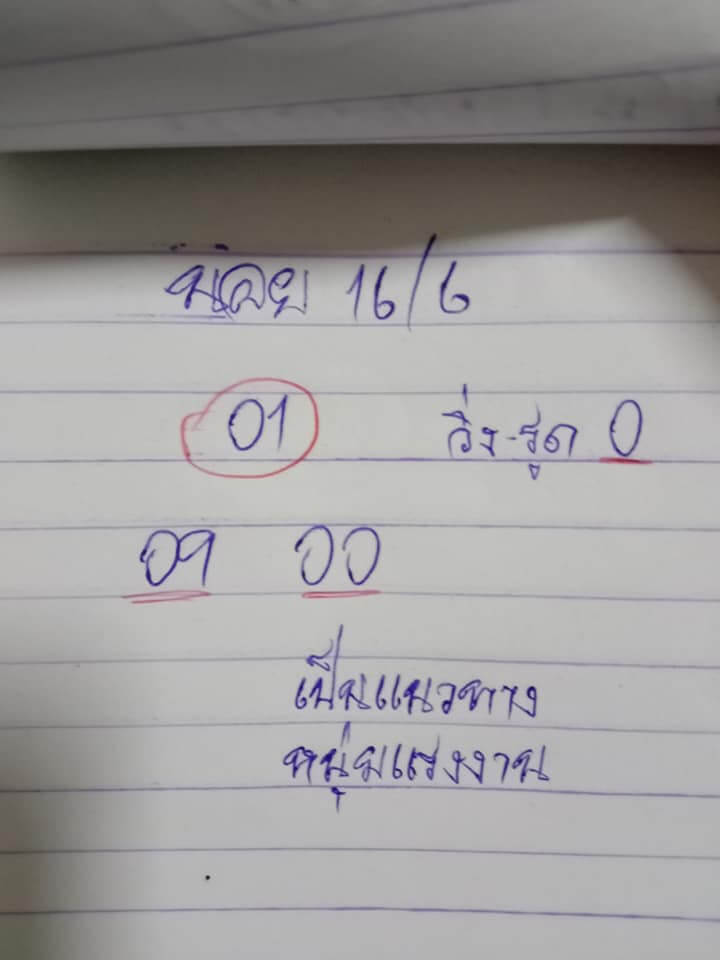 น้อย 16/6
01 วิ่ง-รูด 0
09 00
เป็นแนวทาง
หนุ่มแรงงาน